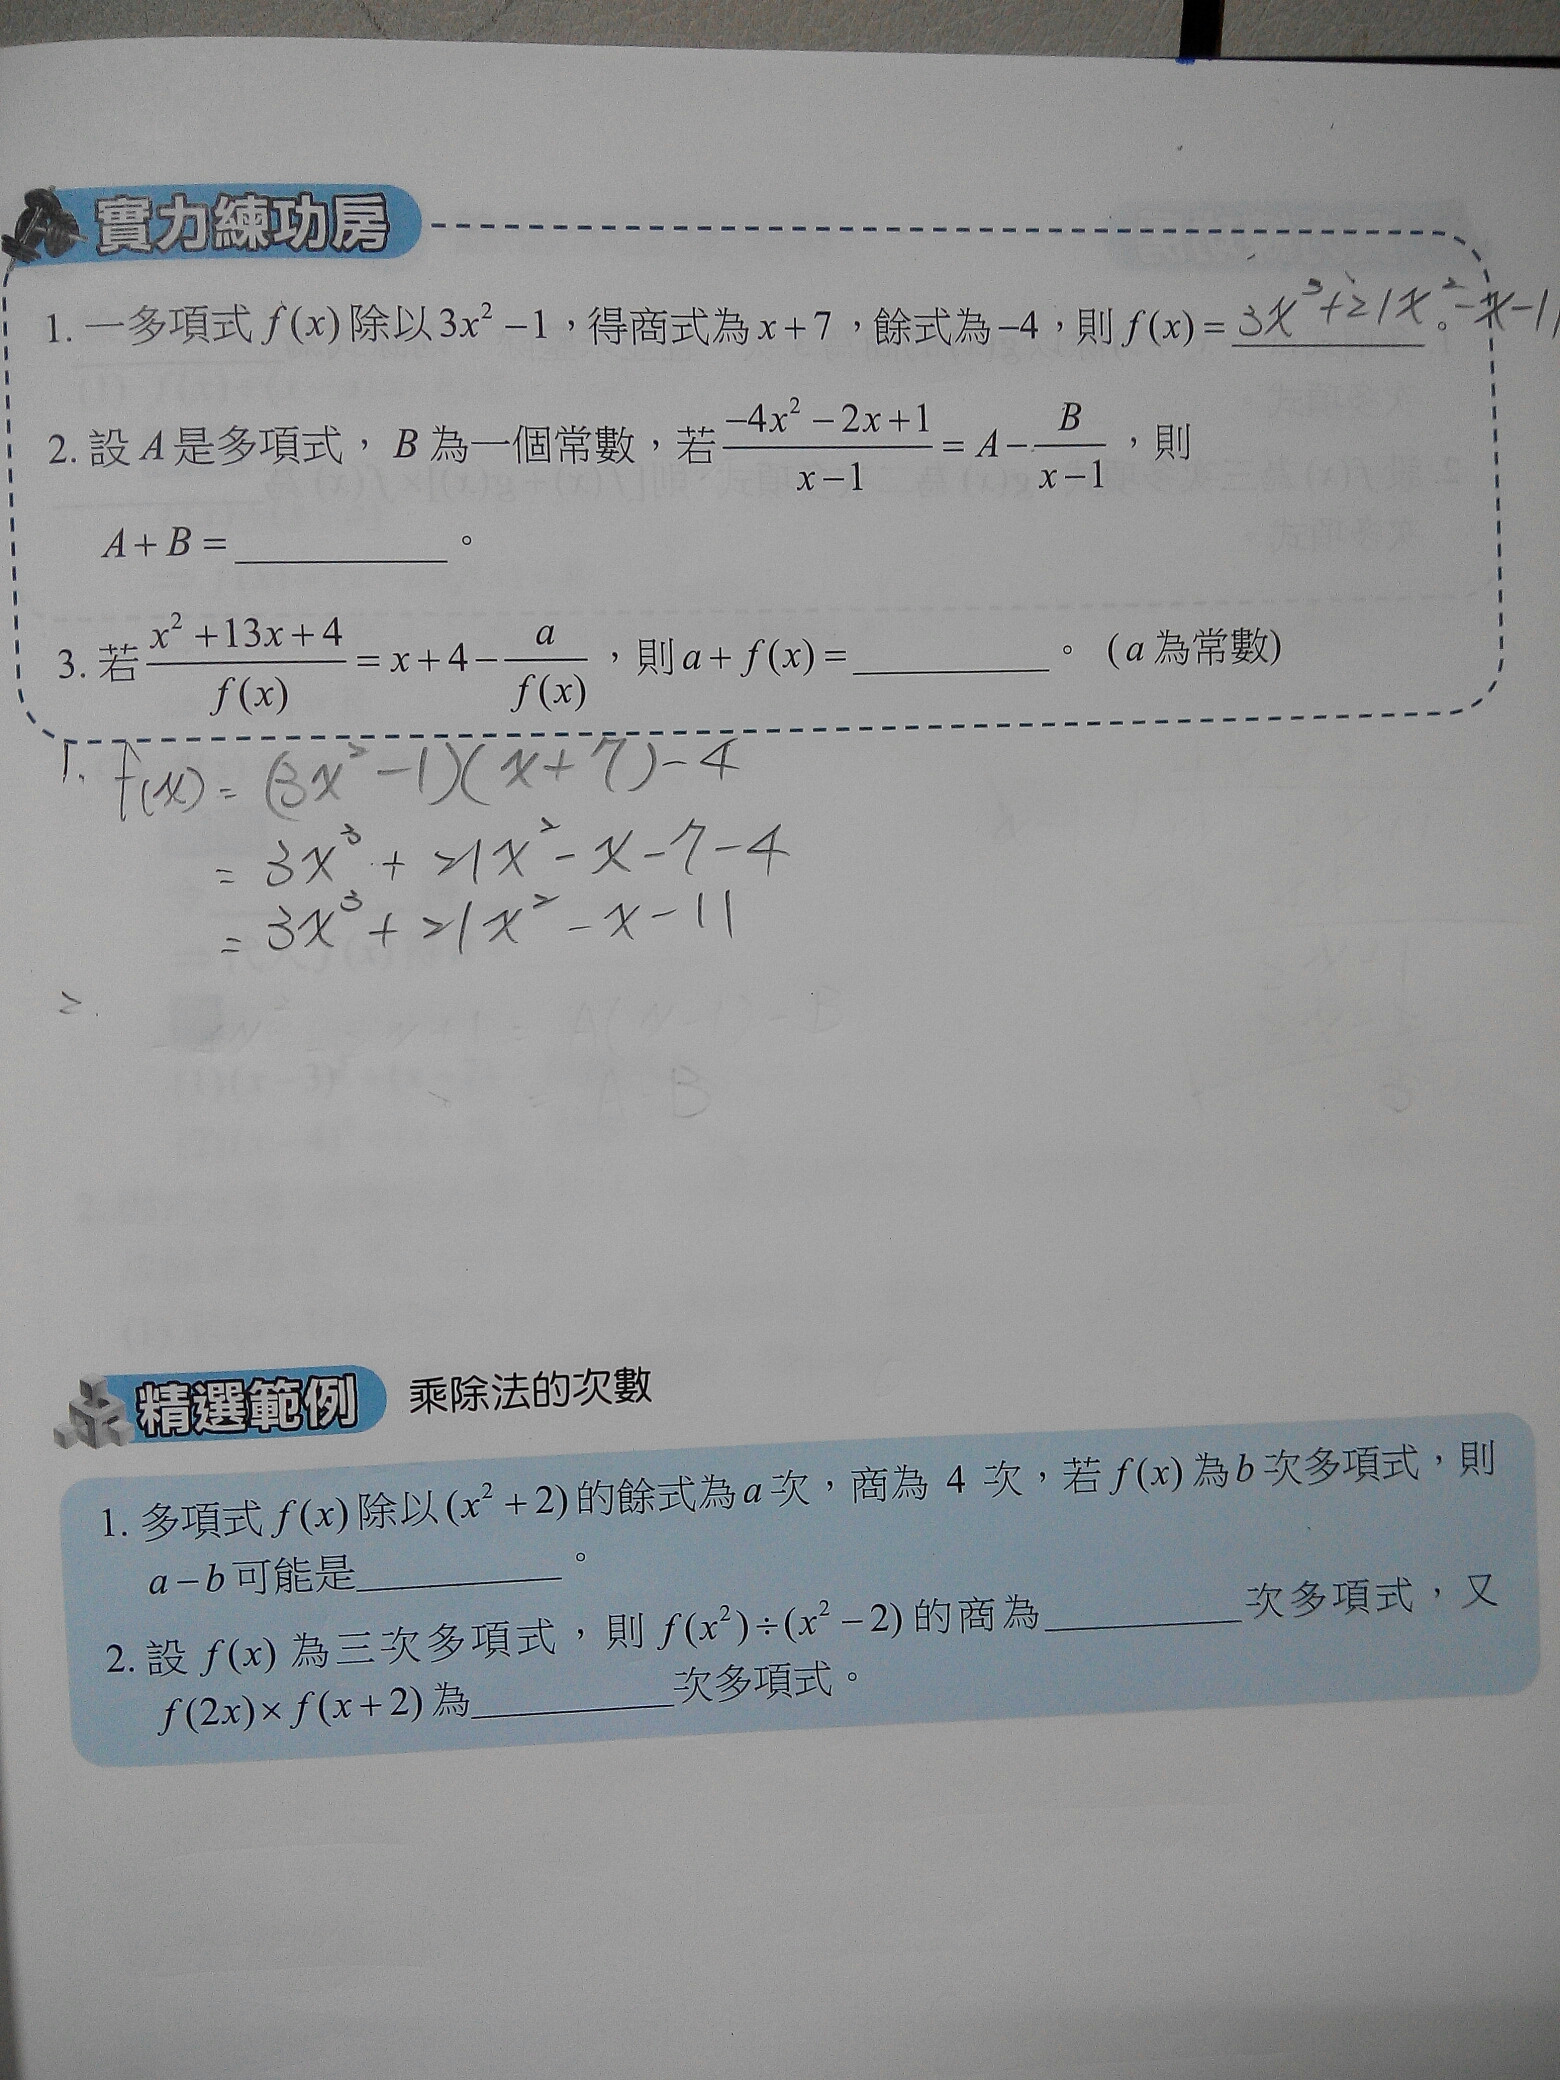 實力練功房
1. 一多項式 f(x) 除以 3x² −1，得商式為 x+7，餘式為 −4，則 f(x) = 3x³+21x²-x-11。
2. 設 A 是多項式， B 為一個常數，若 (−4x² − 2x + 1)/(x − 1) = A − B/(x − 1)，則
A + B = ________。
3. 若 (x² + 13x + 4)/f(x) = x + 4 − a/f(x)，則 a + f(x) = ________。 (a 為常數)
1. f(x) = (3x²-1)(x+7)-4
= 3x³ + 21x² - x - 7 - 4
= 3x³ + 21x² - x - 11
2.
精選範例 乘除法的次數
1. 多項式 f(x) 除以 (x² + 2) 的餘式為 a 次，商為 4 次，若 f(x) 為 b 次多項式，則
a − b 可能是________。
2. 設 f(x) 為三次多項式，則 f(x²) ÷ (x² − 2) 的商為________次多項式，又
f(2x) × f(x + 2) 為________次多項式。